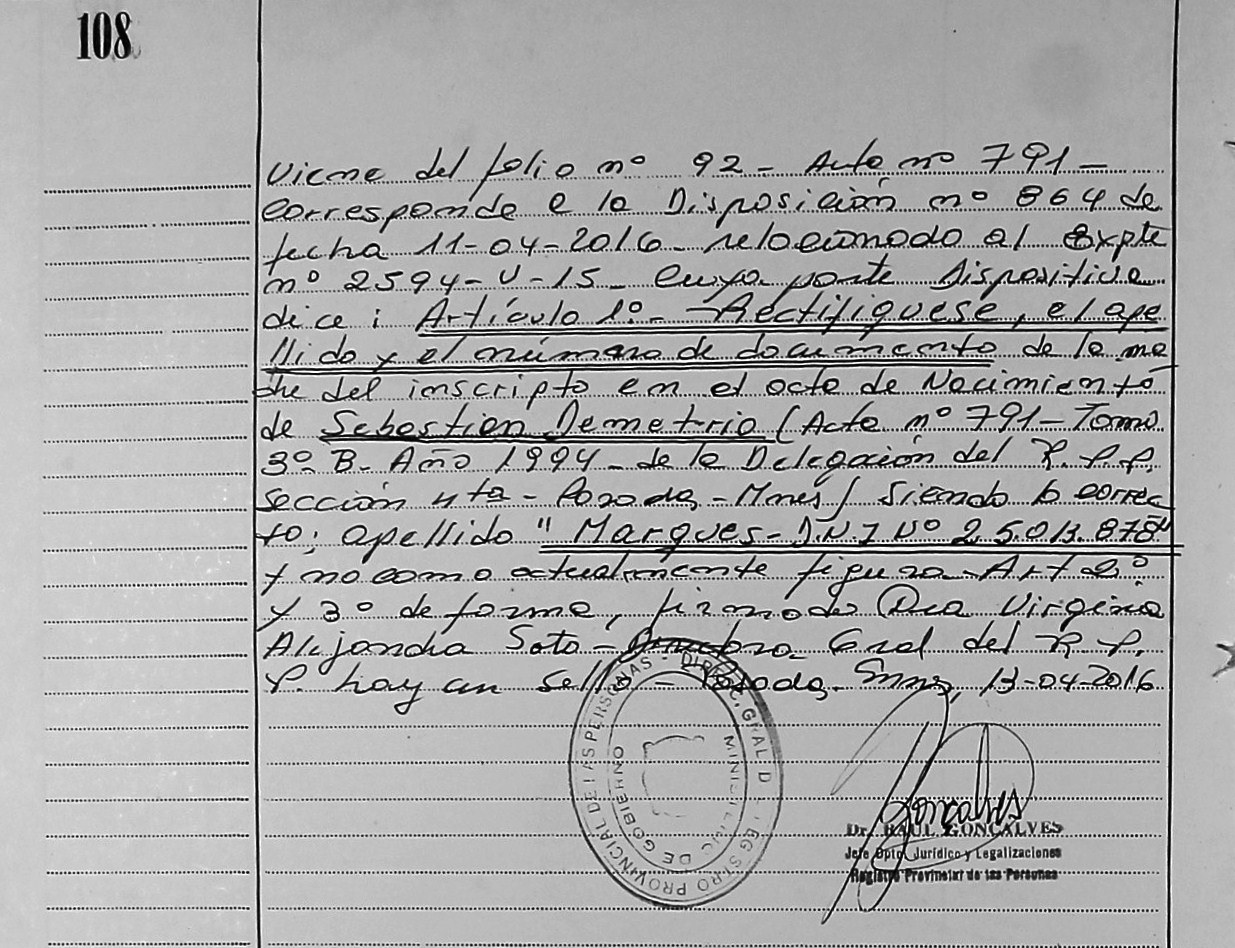 108
Viene del folio nº 92 - Acta nº 791 -
Corresponde a la Disposición nº 864 de
fecha 11-04-2016 - relacionado al Expte
nº 2594-V-15 - cuya parte Dispositiva
dice: Artículo 1º - Rectifíquese, el ape
llido y el número de documento de la ma
dre del inscripto en el acta de Nacimiento
de Sebastian Demetrio (Acta nº 791 - Tomo
3º B - Año 1994 - de la Delegación del R.P.P.
Sección 4ta - Posadas - Mnes) Siendo lo correc
to: apellido "Marques - D.N.I Nº 25.013.878"
y no como actualmente figura - Art 2º
y 3º de forma, firmado Dra Virginia
Alejandra Soto - Gral del R.P.
P. hay un sello - Posadas - Mnes, 13-04-2016
DIREC. GRAL. D REGISTRO PROVINCIAL DE LAS PERSONAS
MINIST DE GOBIERNO
Goncalves
Dr. RAUL GONCALVES
Jefe Dpto. Jurídico y Legalizaciones
Registro Provincial de las Personas